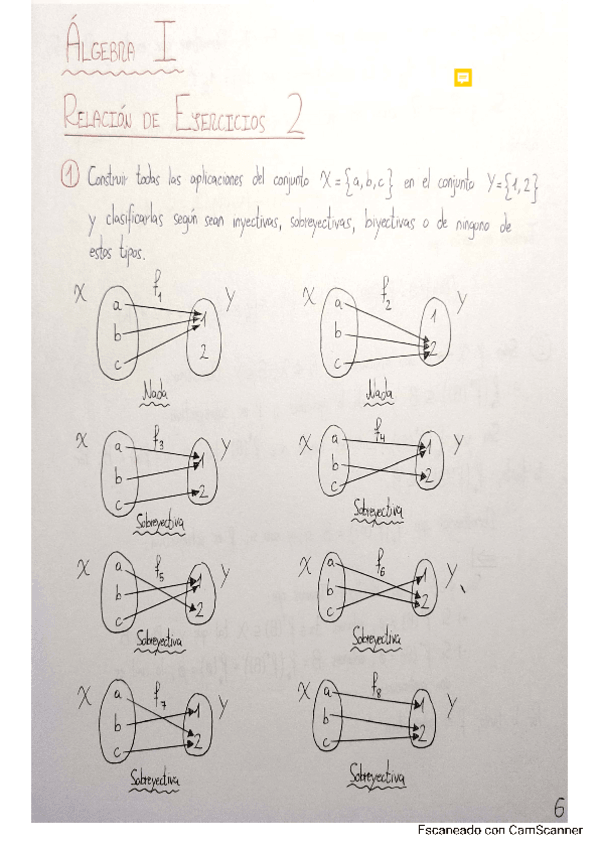 ÁLGEBRA I
RELACIÓN DE EJERCICIOS 2
① Construir todas las aplicaciones del conjunto X={a,b,c} en el conjunto Y={1,2}
y clasificarlas según sean inyectivas, sobreyectivas, biyectivas o de ninguno de
estos tipos.
X f₁ Y
a
b
c
1
2
Nada
X f₂ Y
a
b
c
1
2
Nada
X f₃ Y
a
b
c
1
2
Sobreyectiva
X f₄ Y
a
b
c
1
2
Sobreyectiva
X f₅ Y
a
b
c
1
2
Sobreyectiva
X f₆ Y
a
b
c
1
2
Sobreyectiva
X f₇ Y
a
b
c
1
2
Sobreyectiva
X f₈ Y
a
b
c
1
2
Sobreyectiva
6
Escaneado con CamScanner